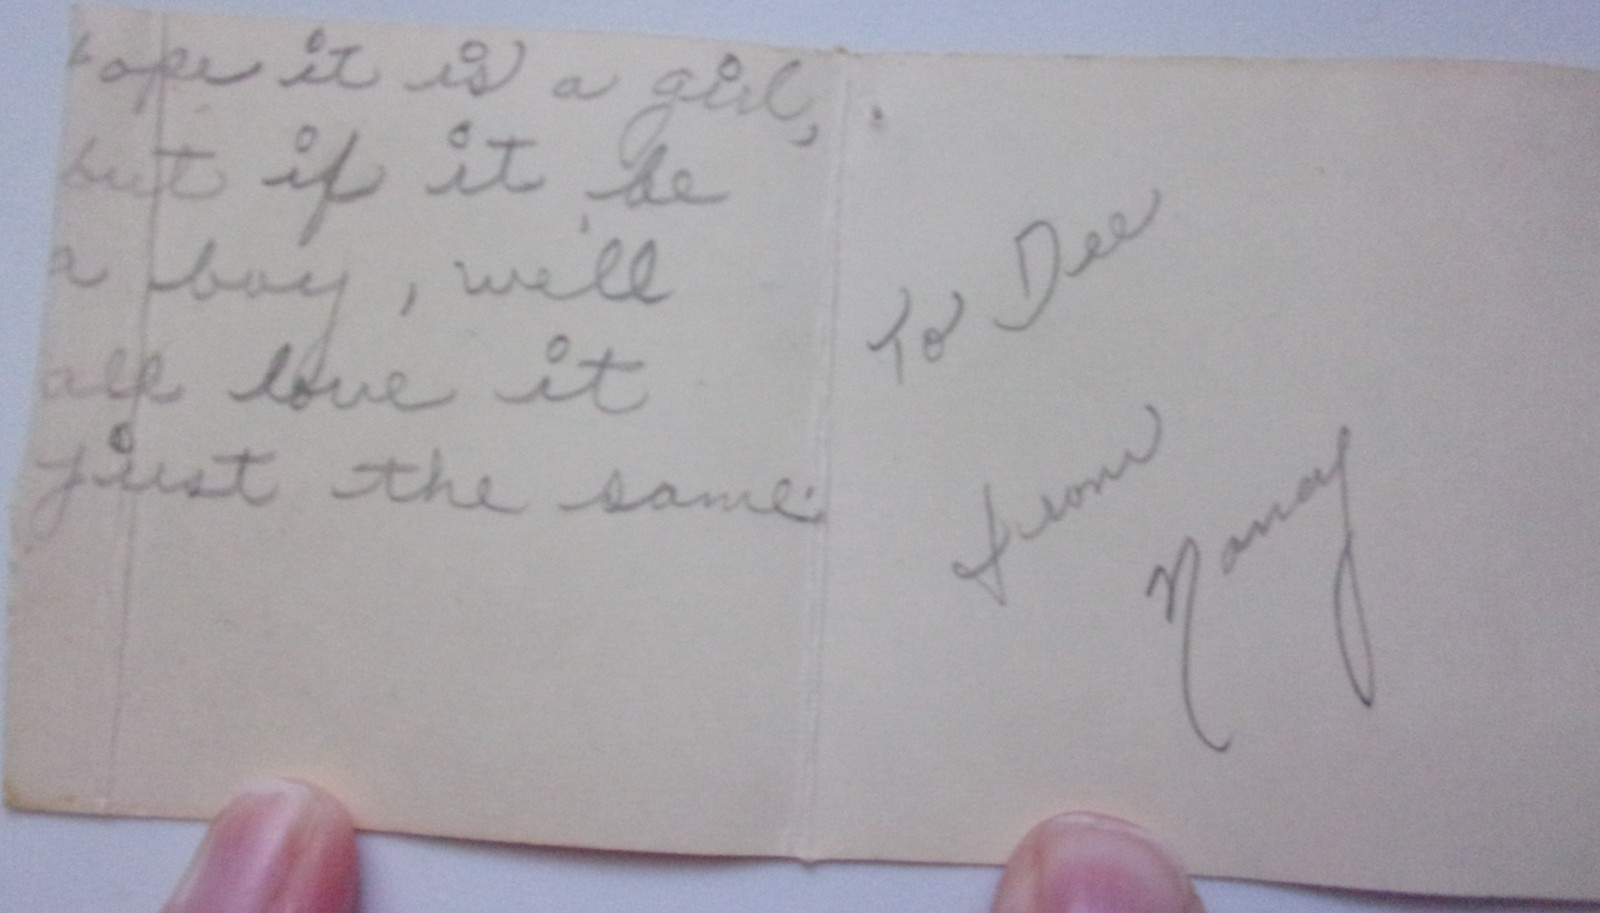 hope it is a girl,
but if it be
a boy, we'll
all love it
just the same.
To Dee
from
Nancy